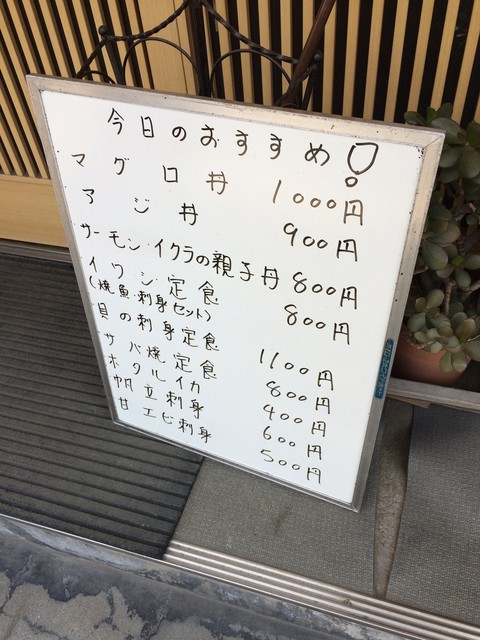 今日のおすすめ!
マグロ丼 1000円
アジ丼 900円
サーモン・イクラの親子丼 800円
イワシ定食 800円
(焼魚・刺身セット)
貝の刺身定食 1100円
サバ焼定食 800円
ホタルイカ 400円
帆立刺身 600円
甘エビ刺身 500円